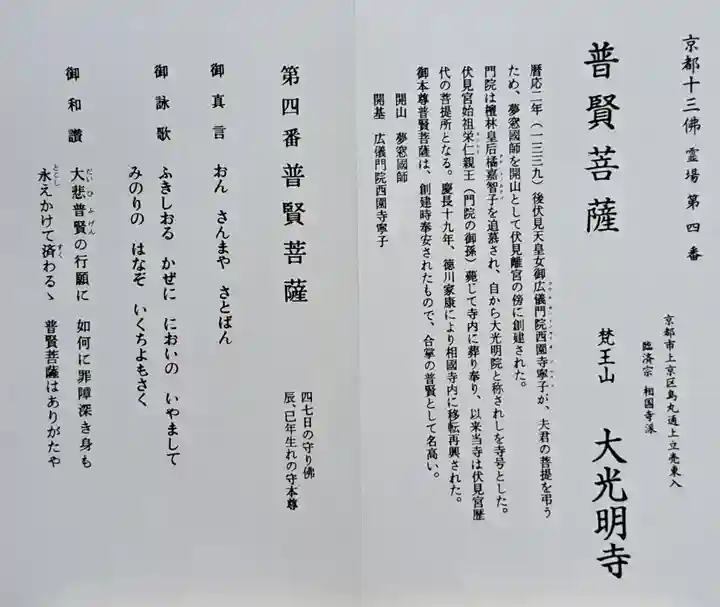 京都十三佛霊場第四番
普賢菩薩
京都市上京区烏丸通上立売東入
臨済宗 相国寺派
梵王山 大光明寺
暦応二年（一三三九）後伏見天皇女御広儀門院西園寺寧子が、夫君の菩提を弔う
ため、夢窓國師を開山として伏見離宮の傍に創建された。
門院は檀林皇后橘嘉智子を追慕され、自から大光明院と称されしを寺号とした。
伏見宮始祖栄仁親王（門院の御孫）薨じて寺内に葬り奉り、以来当寺は伏見宮歴
代の菩提所となる。慶長十九年、徳川家康により相國寺内に移転再興された。
御本尊普賢菩薩は、創建時奉安されたもので、合掌の普賢として名高い。
開山 夢窓國師
開基 広儀門院西園寺寧子
第四番 普賢菩薩
四七日の守り佛
辰、巳年生れの守本尊
御真言 おん さんまや さとばん
御詠歌 ふきしおる かぜに においの いやまして
みのりの はなぞ いくちよもさく
御和讃 大悲普賢の行願に 如何に罪障深き身も
永えかけて済わるゝ 普賢菩薩はありがたや